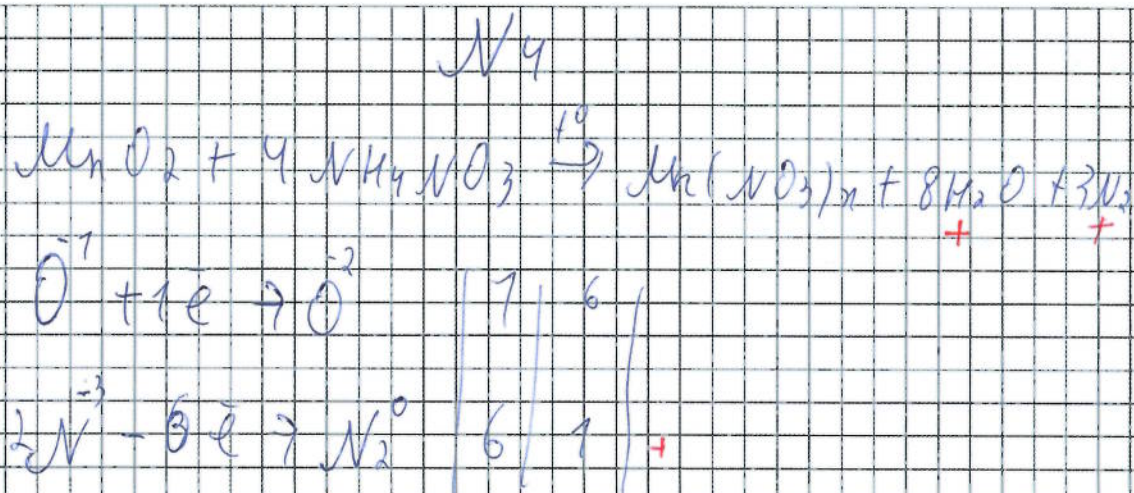 N4
MnO₂ + 4NH₄NO₃ →t⁰ Mn(NO₃)x + 8H₂O + 3N₂
+ +
O⁻¹ + 1ē → O⁻² | 1 | 6 |
2N⁻³ - 6ē → N₂⁰ | 6 | 1 | +